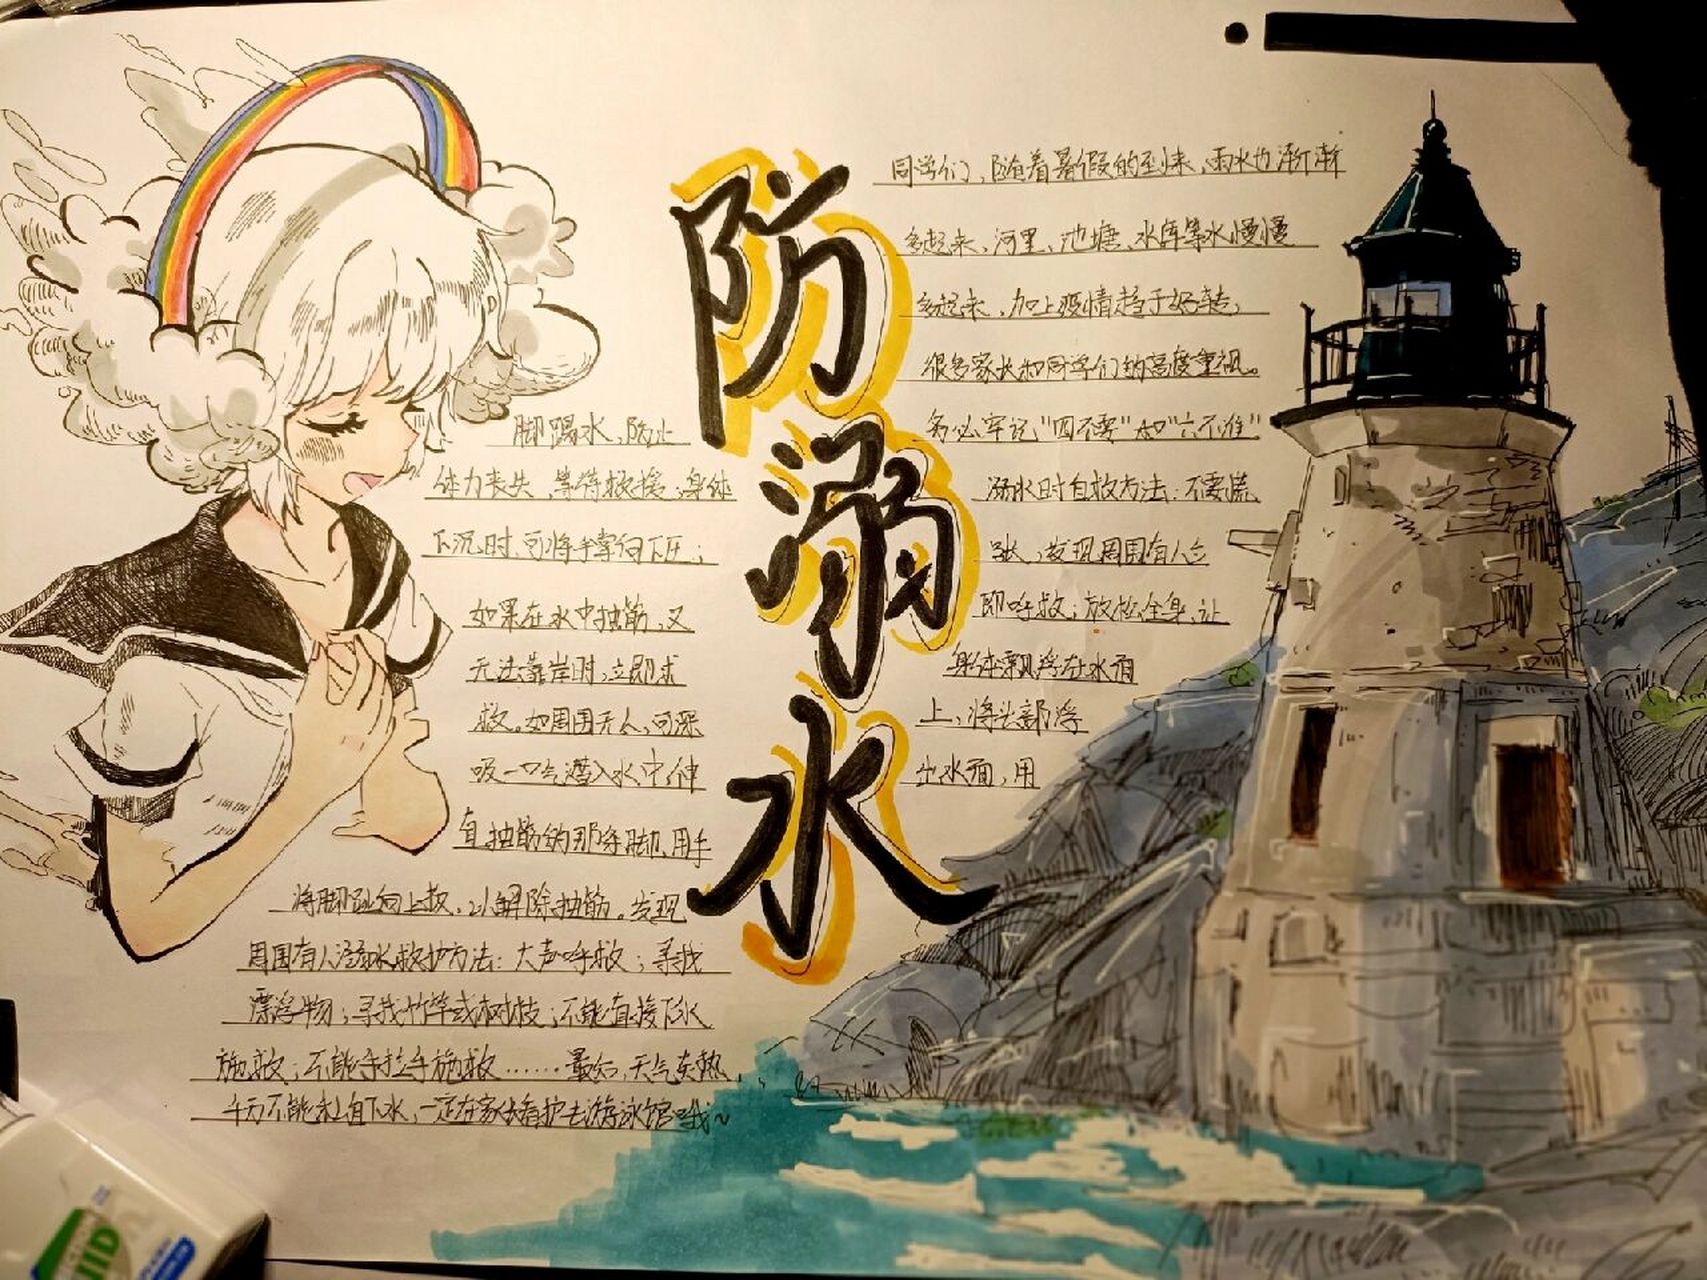 防溺水
同学们，随着暑假的到来，雨水也渐渐
多起来，河里、池塘、水库等水慢慢
多起来，加上疫情趋于好转，
很多家长和同学们的高度重视。
务必牢记“四不要”和“六不准”
溺水时自救方法：不要慌
张，发现周围有人立
即呼救；放松全身，让
身体飘浮在水面
上，将头部浮
出水面，用
脚踢水，防止
体力丧失，等待救援；身体
下沉时，可将手掌向下压；
如果在水中抽筋，又
无法靠岸时，立即求
救。如周围无人，可深
吸一口气潜入水中，伸
直抽筋的那条脚，用手
将脚趾向上扳，以解除抽筋。发现
周围有人溺水救护方法：大声呼救；寻找
漂浮物；寻找竹竿或树枝；不能直接下水
施救；不能手拉手施救……最后，天气炎热，
千万不能私自下水，一定在家长看护去游泳馆哦~
UID